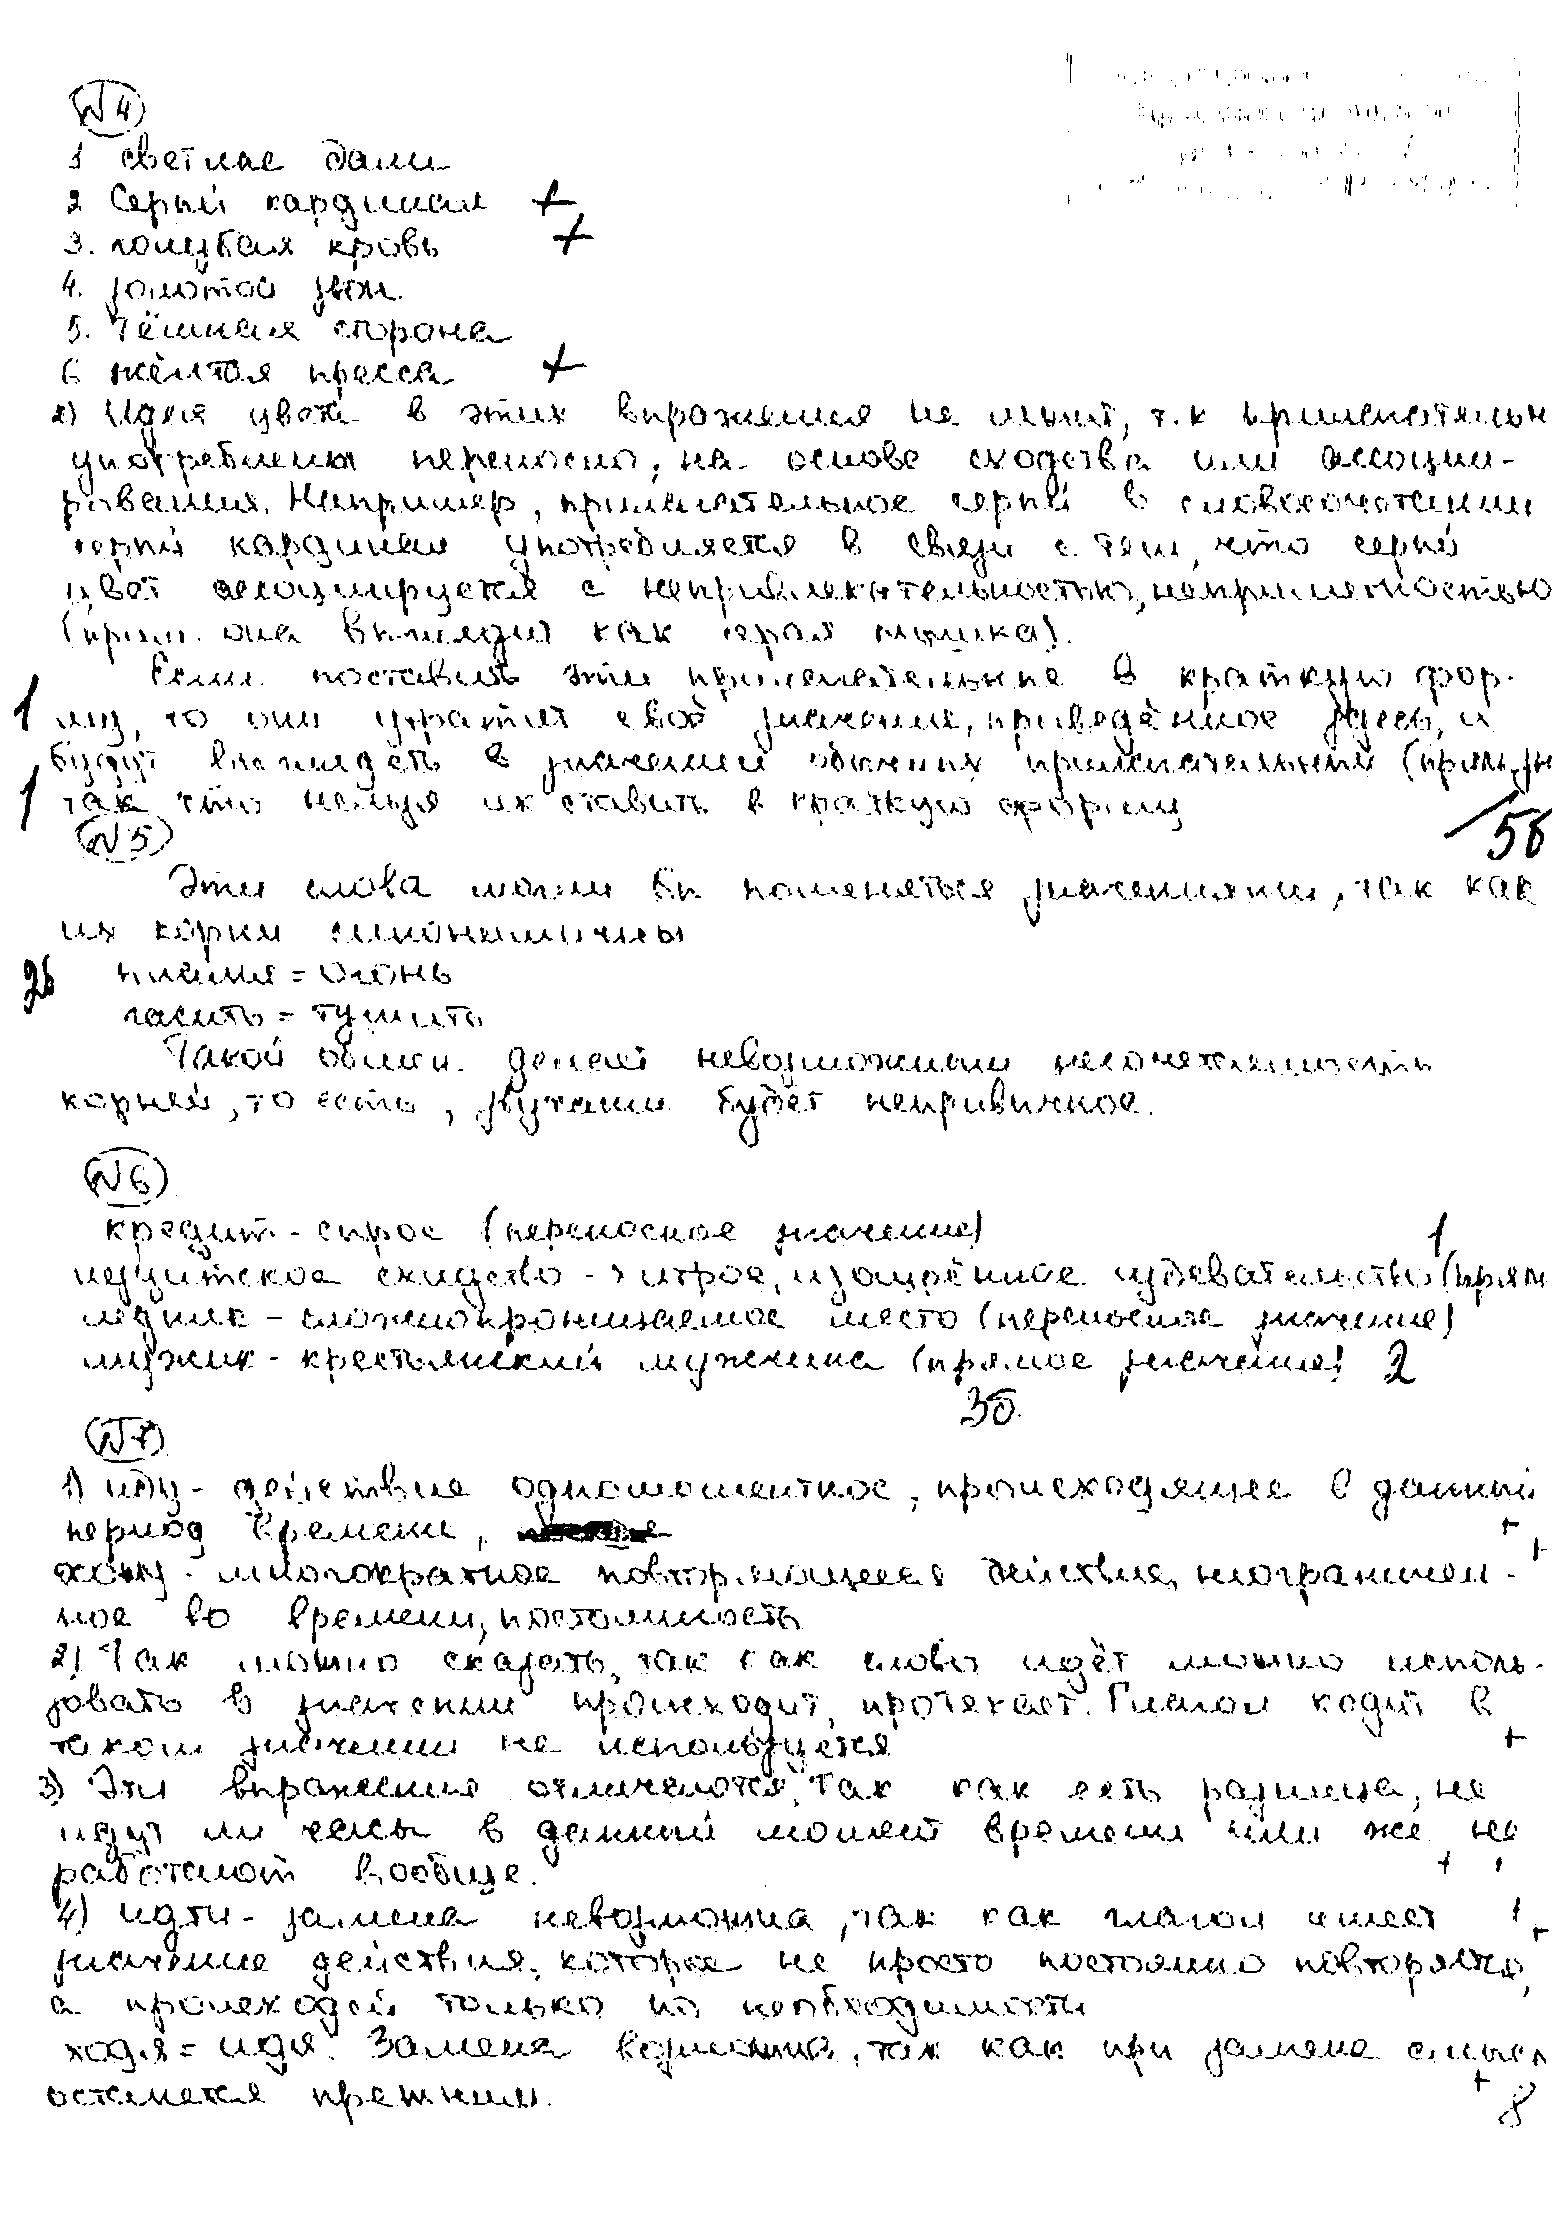 №4
1 светлае дали
2 Серый кардинал +
3. голубая кровь +
4. золотой звон.
5. Тёмная сторона
6 жёлтая пресса +
2) Идея цвета в этих выражениях не лежит, т.к прилагательн
употреблены переносно, на основе сходства или ассоции-
рования. Например, прилагательное серый в словосочетании
серый кардинал употребляется в связи с тем, что серый
цвет ассоциируется с непривлекательностью, неприметностью
(прим. она выглядит как серая мышка).
Если поставить эти прилагательные в краткую фор-
1 му, то они утратят своё значение, приведённое здесь, и
будут выглядеть в значении обычных прилагательных (прям. зн
1 так что нельзя их ставить в краткую форму
5б
№5
Эти слова могли бы поменяться значениями, так как
их корни синонимичны
2б пламя = огонь
гасить = тушить
Такой обмен делает невозможным несочетаемость
корней, то есть, звучание будет непривычное.
№6
кредит - спрос (переносное значение)
1
иезуитское ехидство - хитрое, изощрённое издевательство (прям
ледник - сложнопроницаемое место (переносное значение)
мужик - крестьянский мужчина (прямое значение) 2
3б.
№7
1) иду - действие одномоментное, происходящее в данный
период времени,
хожу - многократное повторяющееся действие, неограничен-
ное во времени, постоянность
2) Так можно сказать, так как слово идёт можно исполь-
зовать в значении происходит, протекает. Глагол ходит в
таком значении не используется +
3) Эти выражения отличаются, так как есть разница, не
идут ли часы в данный момент времени или же не
работают вообще.
4) идти - замена невозможна, так как глагол имеет
значение действия, которое не просто постоянно повторяется,
а происходит только по необходимости
ходя = идя. Замена возможна, так как при замене смысл
останется прежним. +
8